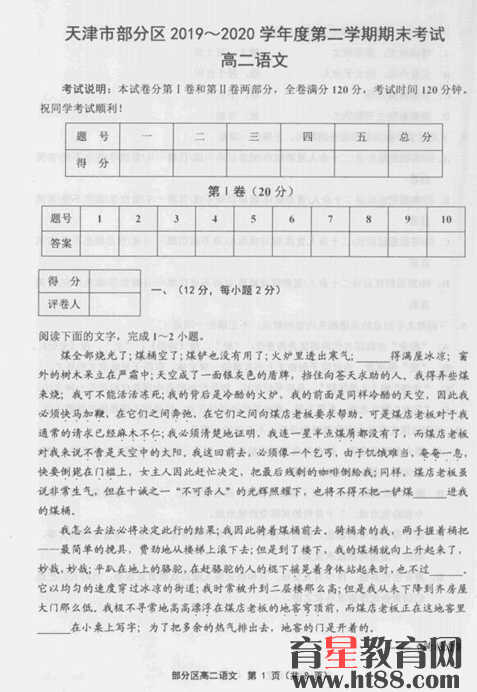 天津市部分区2019～2020学年度第二学期期末考试
高二语文
考试说明：本试卷分第Ⅰ卷和第Ⅱ卷两部分，全卷满分120分，考试时间120分钟。
祝同学考试顺利！
题 号 一 二 三 四 五 总 分
得 分
第Ⅰ卷（20分）
题号 1 2 3 4 5 6 7 8 9 10
答案
得 分
评卷人
一、（12分，每小题2分）
阅读下面的文字，完成1～2小题。
煤全部烧光了；煤桶空了；煤铲也没有用了；火炉里透出寒气；______得满屋冰凉；窗
外的树木呆立在严霜中；天空成了一面银灰色的盾牌，挡住向苍天求助的人。我得弄些煤
来烧；我可不能活活冻死；我的背后是冷酷的火炉，我的前面是同样冷酷的天空，因此我
必须快马加鞭，在它们之间奔驰，在它们之间向煤店老板要求帮助。可是煤店老板对于我
通常的请求已经麻木不仁；我必须清楚地证明，我连一星半点煤屑都没有了，而煤店老板
对我来说不啻是天空中的太阳。我这回前去，必须像一个乞丐，由于饥饿难当，奄奄一息，
快要倒毙在门槛上，女主人因此赶忙决定，把最后残剩的咖啡倒给我；同样，煤店老板虽
说非常生气，但在十诫之一“不可杀人”的光辉照耀下，也将不得不把一铲煤______进我
的煤桶。
我怎么去法必将决定此行的结果；我因此骑着煤桶前去。骑桶者的我，两手握着桶把
——最简单的挽具，费劲地从楼梯上滚下去；但是到了楼下，我的煤桶就向上升起来了，
妙哉，妙哉；平趴在地上的骆驼，在赶骆驼的人的棍下摇晃着身体站起来时，也不过______。
它以均匀的速度穿过冰凉的街道；我时常被升到二层楼那么高；但是我从未下降到齐房屋
大门那么低。我极不寻常地高高漂浮在煤店老板的地窖穹顶前，而煤店老板正在这地窖里
______在小桌上写字；为了把多余的热气排出去，地窖的门是开着的。
部分区高二语文 第 1 页（共 8 页）
育星教育网
www.ht88.com